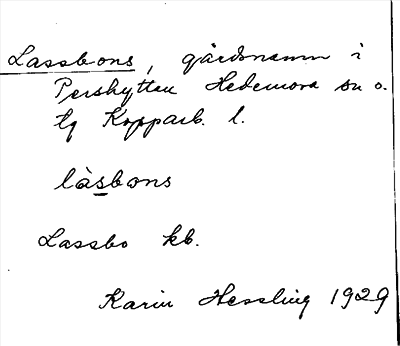 Lassbons, gårdsnamn i
Pershyttan Hedemora sn o.
tg Kopparb. l.
làsbons
Lassbo kb.
Karin Hessling 1929